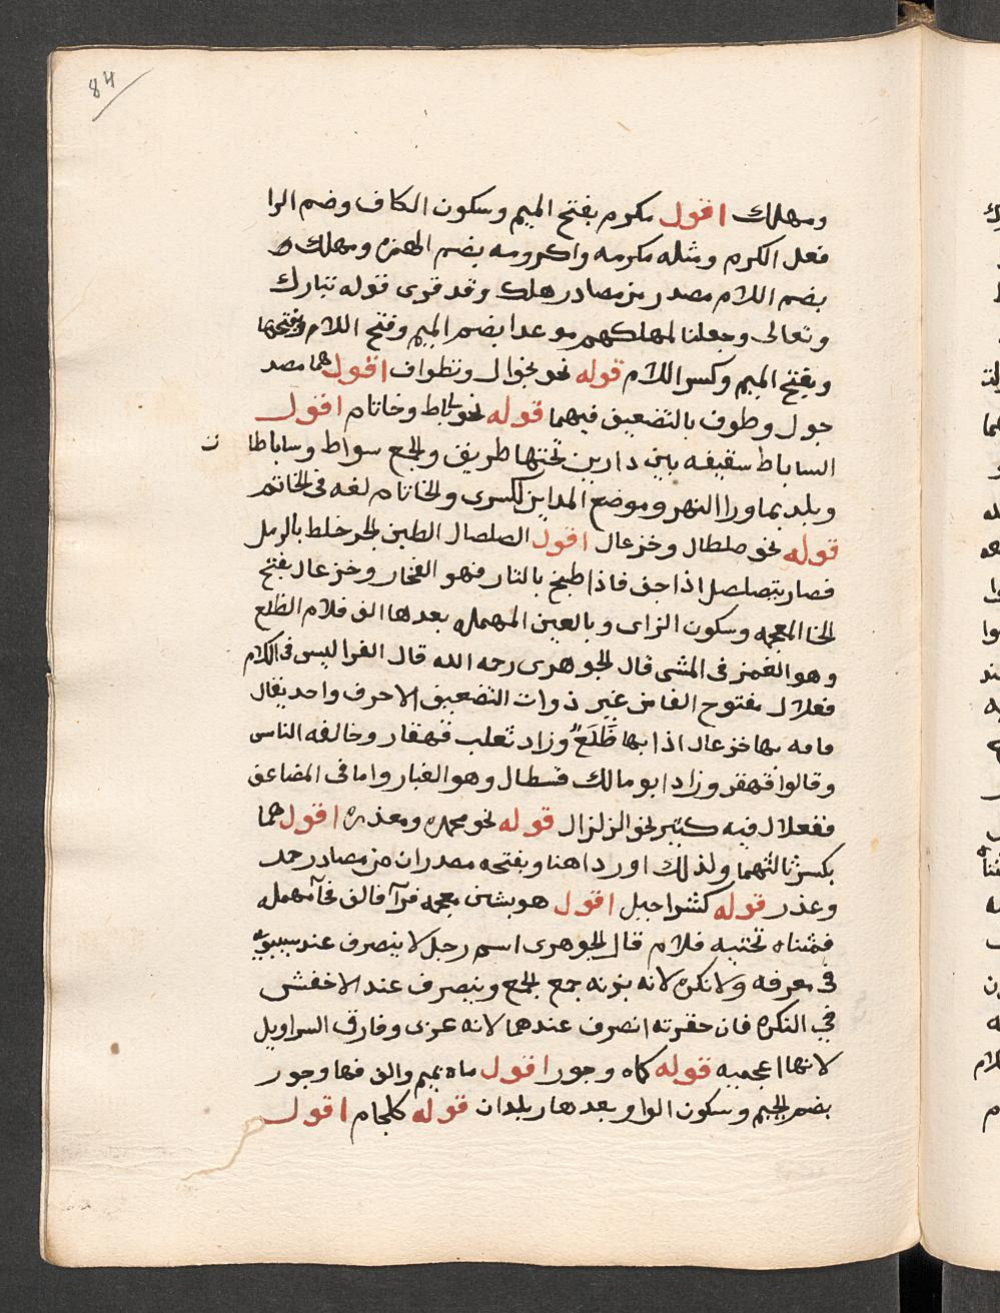 84
ومهلك اقول مكرم بفتح الميم وسكون الكاف وضم الرا
فعل الكرم ومثله مكرمه واكرومه بضم الهمزه ومهلك
بضم اللام مصدر من مصادر هلك وقد قرى قوله تبارك
وتعالى وجعلنا لمهلكهم موعدا بضم الميم وفتح اللام وبفتحها
وبفتح الميم وكسر اللام قوله نحو تجوال وتطواف اقول هما مصد
جول وطوف بالتضعيف فيهما قوله نحو ساباط وخاتام اقول
الساباط سقيفه بين دارين تحتها طريق والجمع سوابط وساباطا ت
وبلد بماورا النهر وموضع المداين لكسرى والخاتام لغه فى الخاتم
قوله نحو صلصال وخزعال اقول الصلصال الطين الحر خلط بالرمل
فصار يتصلصل اذا جف فاذا طبخ بالنار فهو الفخار وخزعال بفتح
الخا المعجمه وسكون الزاى وبالعين المهمله بعدها الف فلام الظلع
وهو الغمز فى المشى قال الجوهرى رحمه الله قال الفرا ليس فى الكلام
فعلال مفتوح الفا من غير ذوات التضعيف الا حرف واحد يقال
ناقه بها خزعال اذا بها ظَلَعٌ وزاد ثعلب قهقار وخالفه الناس
وقالوا قهقر وزاد ابو مالك قسطال وهو الغبار واما فى المضاعف
ففعلال فيه كثير نحو الزلزال قوله نحو محمده ومعذره اقول هما
بكسر ثالثهما ولذلك اوردا هنا وبفتحه مصدران من مصادر حمد
وعذر قوله كشراحيل اقول هو بشين معجمه فرآ فالف فحآ مهمله
فمثناه تحتيه فلام قال الجوهرى اسم رجل لا ينصرف عند سيبويه
فى معرفه ولا نكره لانه بزنه جمع الجمع وينصرف عند الاخفش
في النكره فان حقرته انصرف عندهما لانه عربى وفارق السراويل
لانها اعجميه قوله كماه وجور اقول ماه بميم والف فها وجور
بضم الجيم وسكون الواو بعدها را بلدان قوله كلجام اقول